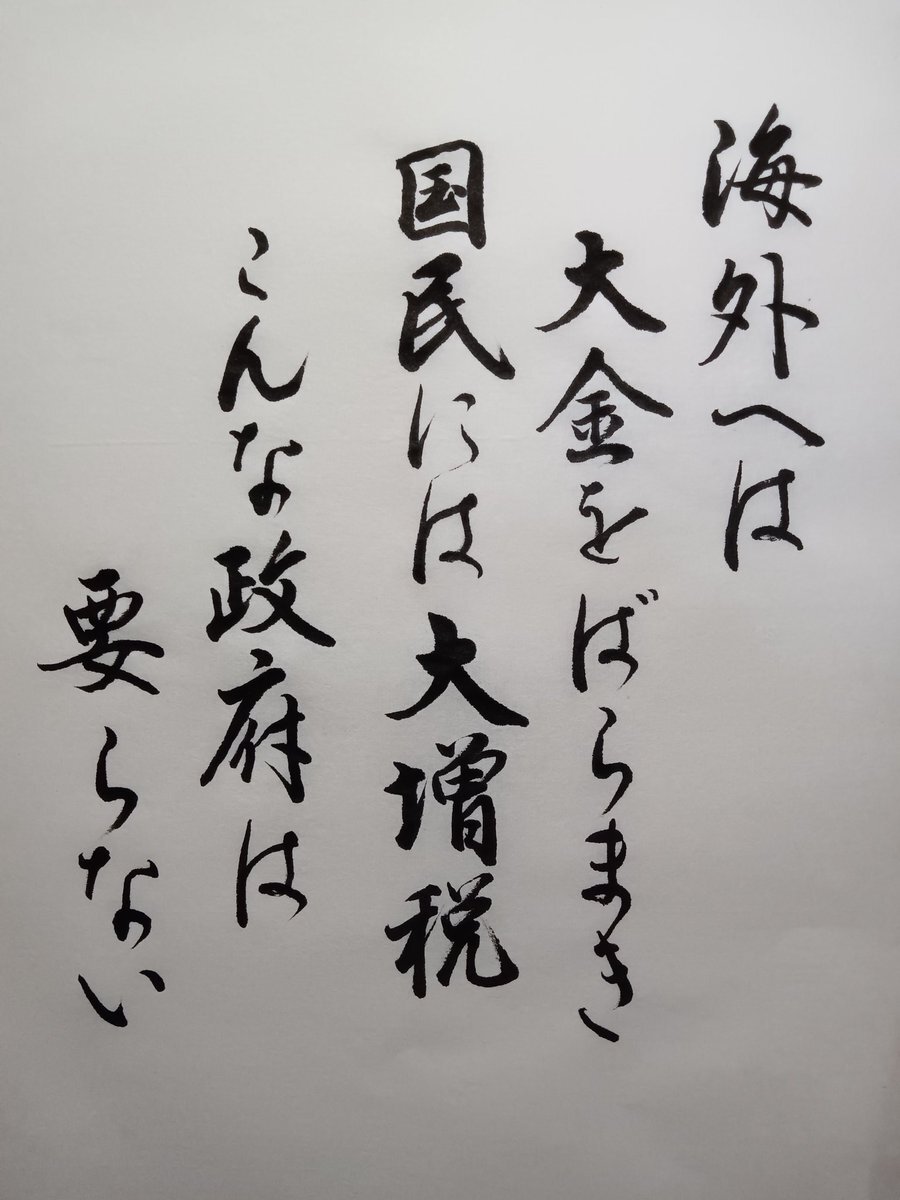 海外へは
大金をばらまき
国民には大増税
こんな政府は
要らない